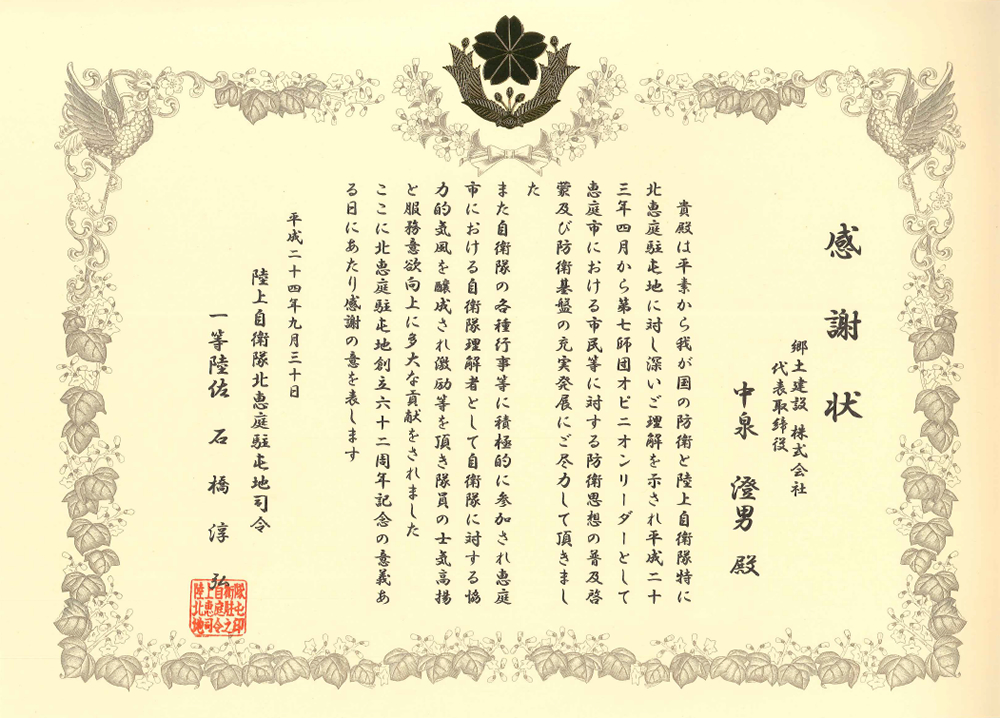 感謝状
郷土建設 株式会社
代表取締役
中泉 澄男 殿
貴殿は平素から我が国の防衛と陸上自衛隊特に
北恵庭駐屯地に対し深いご理解を示され平成二十
三年四月から第七師団オピニオンリーダーとして
恵庭市における市民等に対する防衛思想の普及啓
蒙及び防衛基盤の充実発展にご尽力して頂きまし
た
また自衛隊の各種行事等に積極的に参加され恵庭
市における自衛隊理解者として自衛隊に対する協
力的気風を醸成され激励等を頂き隊員の士気高揚
と服務意欲向上に多大な貢献をされました
ここに北恵庭駐屯地創立六十二周年記念の意義あ
る日にあたり感謝の意を表します
平成二十四年九月三十日
陸上自衛隊北恵庭駐屯地司令
一等陸佐 石橋 淳弘
陸上自衛隊
北恵庭駐屯
地司令之印